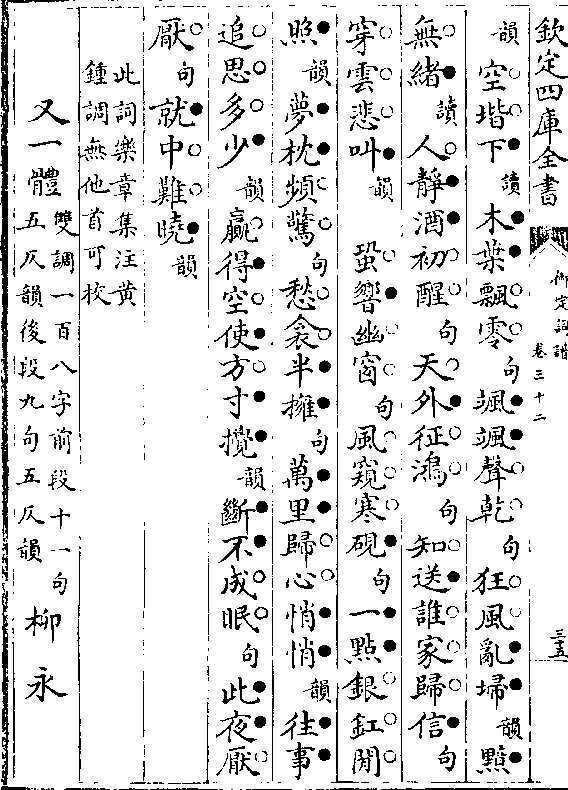 欽定四庫全書 御定詞譜 卷三十二 三五
韻 空堦下 讀 木葉飄零 句 颯颯聲乾 句 狂風亂埽 韻 黯
無緒 讀 人靜酒初醒 句 天外征鴻 句 知送誰家歸信 句
穿雲悲叫 韻 蛩響幽窗 句 風窺寒硯 句 一點銀釭閒
照 韻 夢枕頻驚 句 愁衾半擁 句 萬里歸心悄悄 韻 往事
追思多少 韻 贏得空使方寸攪 韻 斷不成眠 句 此夜厭
厭 句 就中難曉 韻
此詞樂章集注黃
鍾調無他首可校
又一體 雙調一百八字前段十一句
五仄韻後段九句五仄韻 柳永